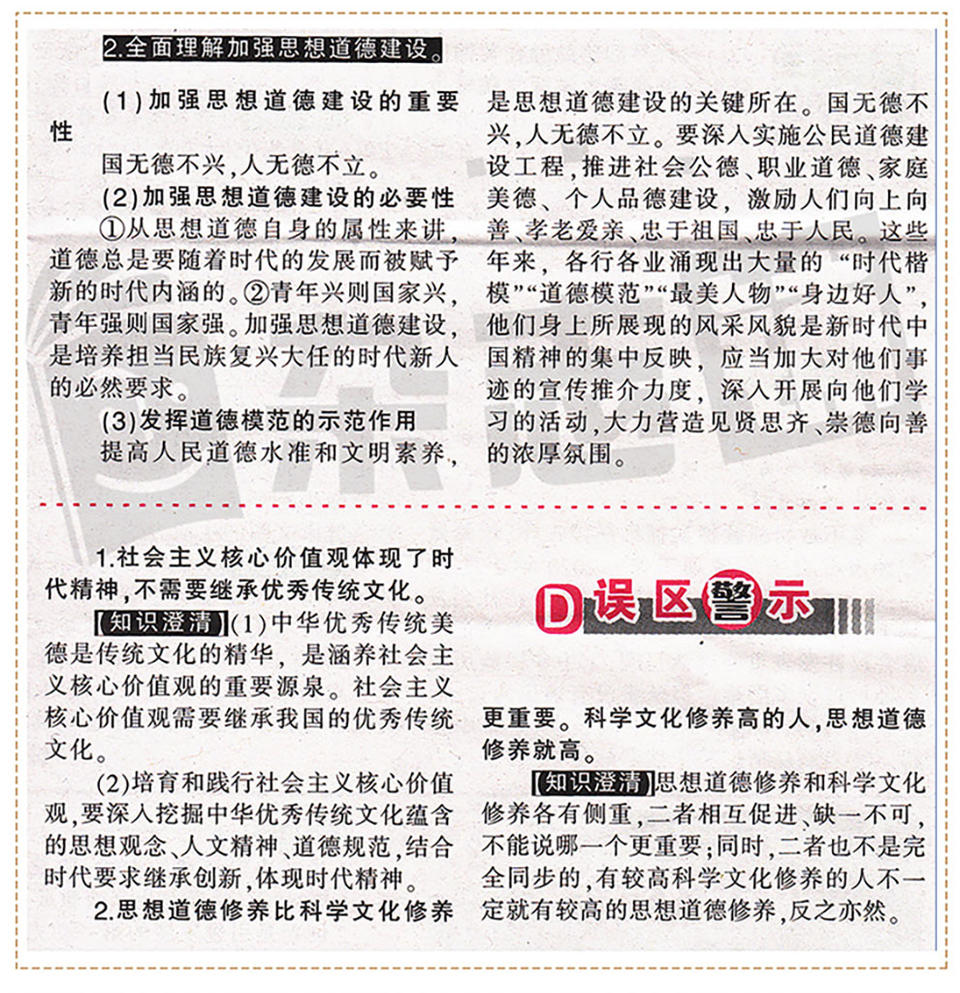 2.全面理解加强思想道德建设。
(1)加强思想道德建设的重要
性
国无德不兴,人无德不立。
(2)加强思想道德建设的必要性
①从思想道德自身的属性来讲,
道德总是要随着时代的发展而被赋予
新的时代内涵的。②青年兴则国家兴,
青年强则国家强。加强思想道德建设,
是培养担当民族复兴大任的时代新人
的必然要求。
(3)发挥道德模范的示范作用
提高人民道德水准和文明素养,
是思想道德建设的关键所在。国无德不
兴,人无德不立。要深入实施公民道德建
设工程,推进社会公德、职业道德、家庭
美德、个人品德建设，激励人们向上向
善、孝老爱亲、忠于祖国、忠于人民。这些
年来，各行各业涌现出大量的“时代楷
模”“道德模范”“最美人物”“身边好人”,
他们身上所展现的风采风貌是新时代中
国精神的集中反映，应当加大对他们事
迹的宣传推介力度，深入开展向他们学
习的活动,大力营造见贤思齐、崇德向善
的浓厚氛围。
1.社会主义核心价值观体现了时
代精神,不需要继承优秀传统文化。
【知识澄清】(1)中华优秀传统美
德是传统文化的精华，是涵养社会主
义核心价值观的重要源泉。社会主义
核心价值观需要继承我国的优秀传统
文化。
(2)培育和践行社会主义核心价值
观,要深入挖掘中华优秀传统文化蕴含
的思想观念、人文精神、道德规范,结合
时代要求继承创新,体现时代精神。
2.思想道德修养比科学文化修养
D误区警示
更重要。科学文化修养高的人,思想道德
修养就高。
【知识澄清】思想道德修养和科学文化
修养各有侧重,二者相互促进、缺一不可,
不能说哪一个更重要;同时,二者也不是完
全同步的,有较高科学文化修养的人不一
定就有较高的思想道德修养,反之亦然。